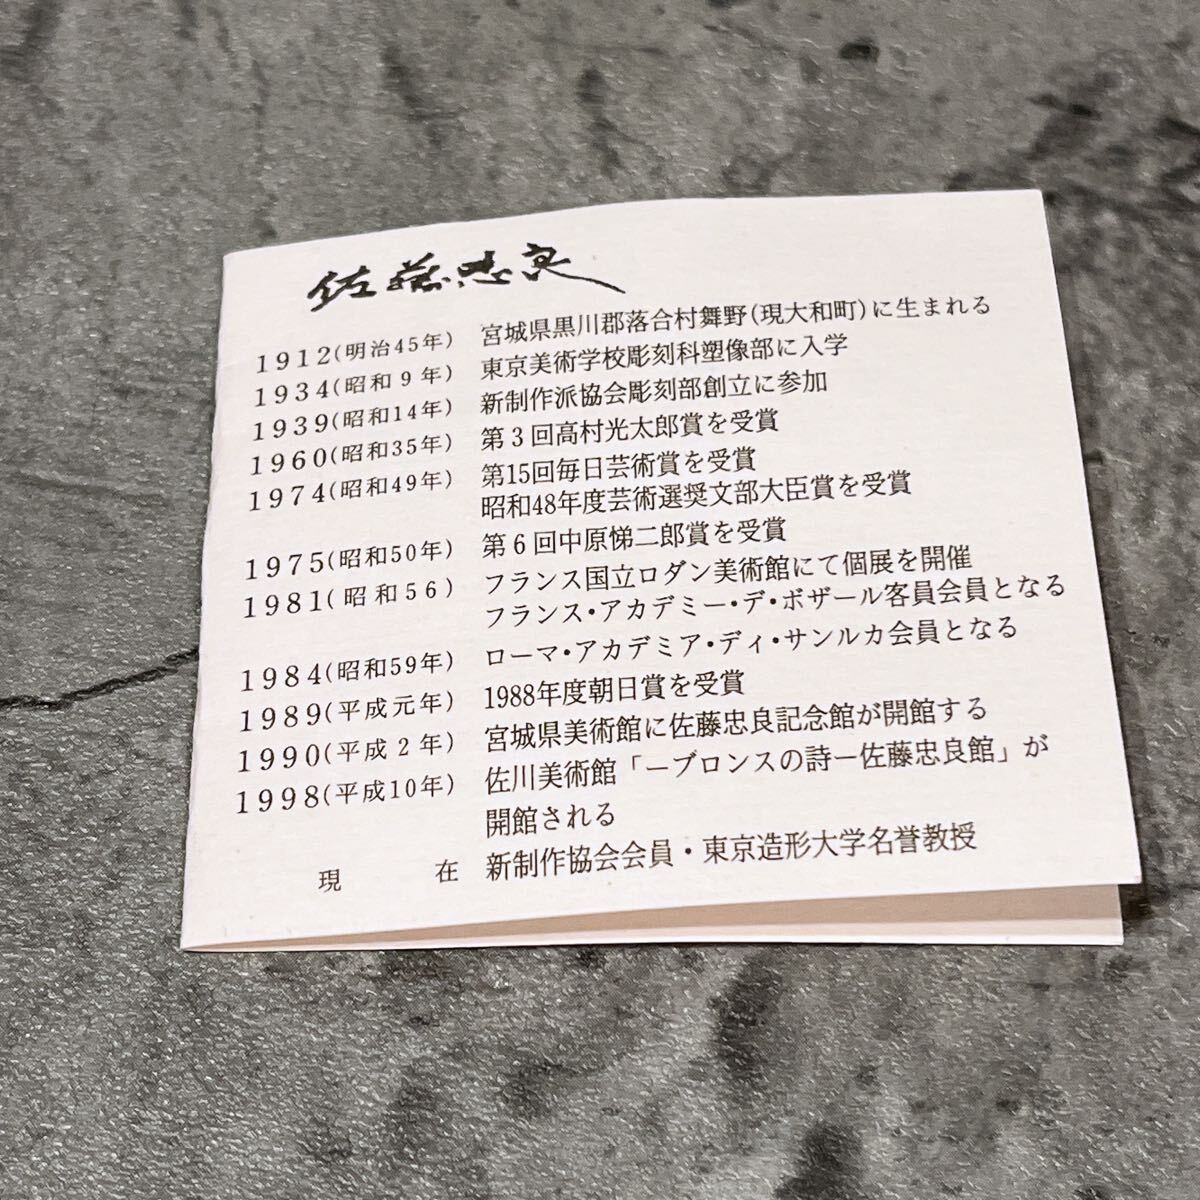 佐藤忠良
1912(明治45年) 宮城県黒川郡落合村舞野(現大和町)に生まれる
1934(昭和9年) 東京美術学校彫刻科塑像部に入学
1939(昭和14年) 新制作派協会彫刻部創立に参加
1960(昭和35年) 第3回高村光太郎賞を受賞
1974(昭和49年) 第15回毎日芸術賞を受賞
昭和48年度芸術選奨文部大臣賞を受賞
1975(昭和50年) 第6回中原悌二郎賞を受賞
1981(昭和56) フランス国立ロダン美術館にて個展を開催
フランス・アカデミー・デ・ボザール客員会員となる
1984(昭和59年) ローマ・アカデミア・ディ・サンルカ会員となる
1989(平成元年) 1988年度朝日賞を受賞
1990(平成2年) 宮城県美術館に佐藤忠良記念館が開館する
1998(平成10年) 佐川美術館「ーブロンスの詩ー佐藤忠良館」が
開館される
現 在 新制作協会会員・東京造形大学名誉教授